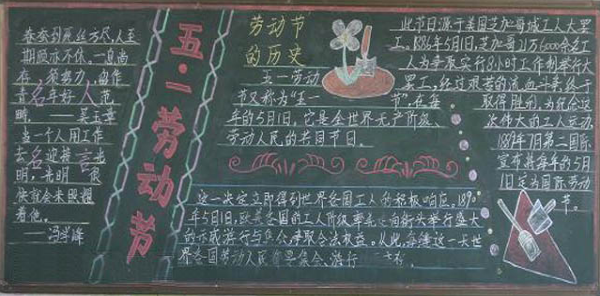 春蚕到死丝方尽,人至
期颐亦不休。一息尚
存,须努力,留作
青年好
畴。——吴玉章
当一个人用工作
去迎接
明,光明
快就会来照耀
着他。
——冯学峰
五·一劳动节
劳动节
的历史
五一劳动
节又称为"五一 节",在每
年的5月1日。它是全世界无产阶级、
劳动人民的共同节日。
此节日源于美国芝加哥城工人大罢
工,1886年5月1日,芝加哥21万6000余名工
人为争取实行8小时工作制举行大
罢工,经过艰苦的流血斗争,终于
取得胜利。为纪念这
次伟大的工人运动
1889年7月第二国际
宣布将每年的5月
1日定为国际劳动
节。
这一决定立即得到世界各国工人的积极响应。1890
年5月1日,欧美各国的工人阶级率先走向街头举行盛大
的示威游行与集会,争取合法权益。从此,每逢这一天世
界各国劳动人民都要集会、游行